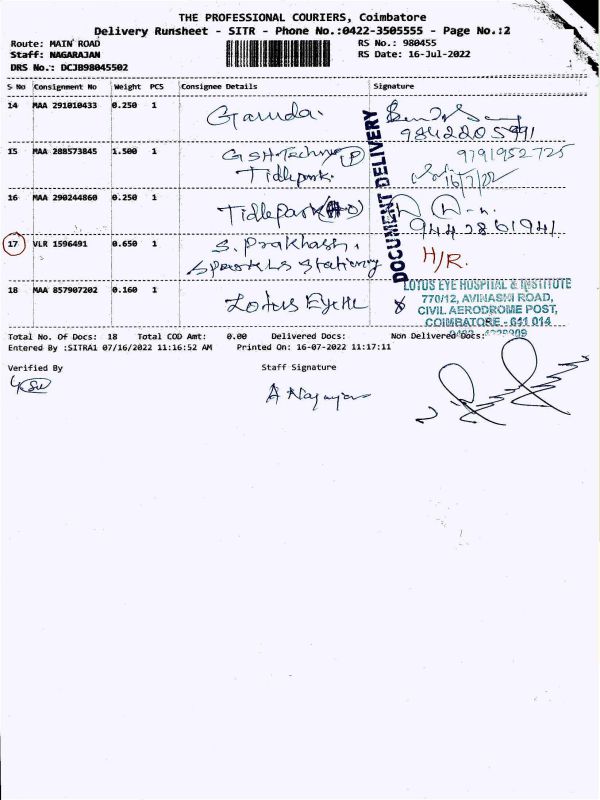 THE PROFESSIONAL COURIERS, Coimbatore
Delivery Runsheet - SITR - Phone No.:0422-3505555 - Page No.:2
Route: MAIN ROAD
RS No.: 980455
Staff: NAGARAJAN
RS Date: 16-Jul-2022
DRS No.: DCJB98045502
S No Consignment No Weight PCS Consignee Details Signature
14 MAA 291010433 0.250 1 Garuda.
9842205991
15 MAA 288573845 1.500 1 GSH Techno (P)
9791952725
Tidlepark.
16/7/22
16 MAA 290244860 0.250 1 Tidlepark
9442861941
DOCUMENT DELIVERY
17 VLR 1596491 0.650 1 S. Prakhash,
Stationery
H/R.
18 MAA 857907202 0.160 1 Lotus Eye
LOTUS EYE HOSPITAL & INSTITUTE
770/12, AVINASHI ROAD,
CIVIL AERODROME POST,
COIMBATORE - 641 014
Total No. Of Docs: 18 Total COD Amt: 0.00 Delivered Docs: Non Delivered Docs:
Entered By :SITRA1 07/16/2022 11:16:52 AM Printed On: 16-07-2022 11:17:11
Verified By
Staff Signature
A Nagarajan